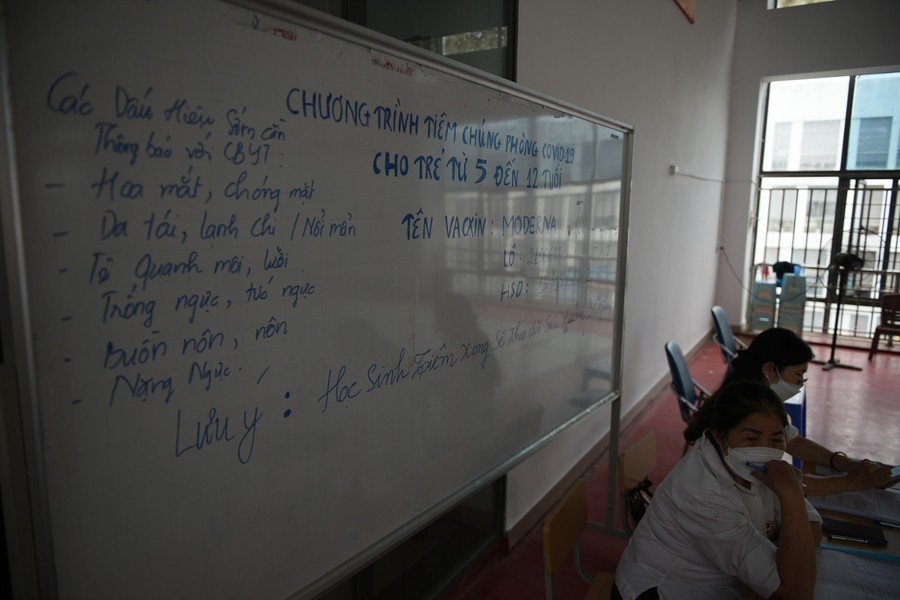 Các Dấu Hiệu Sớm cần
Thông báo với CBYT:
- Hoa mắt, chóng mặt
- Da tái, lạnh chi / Nổi mẩn
- Tê quanh môi, lưỡi
- Trống ngực, tức ngực
- Buồn nôn, nôn
- Nặng Ngực.
CHƯƠNG TRÌNH TIÊM CHỦNG PHÒNG COVID19
CHO TRẺ TỪ 5 ĐẾN 12 TUỔI
TÊN VACXIN: MODERNA
LÔ:
HSD:
Lưu ý: Học Sinh Tiêm xong Sẽ theo dõi Sau tiêm